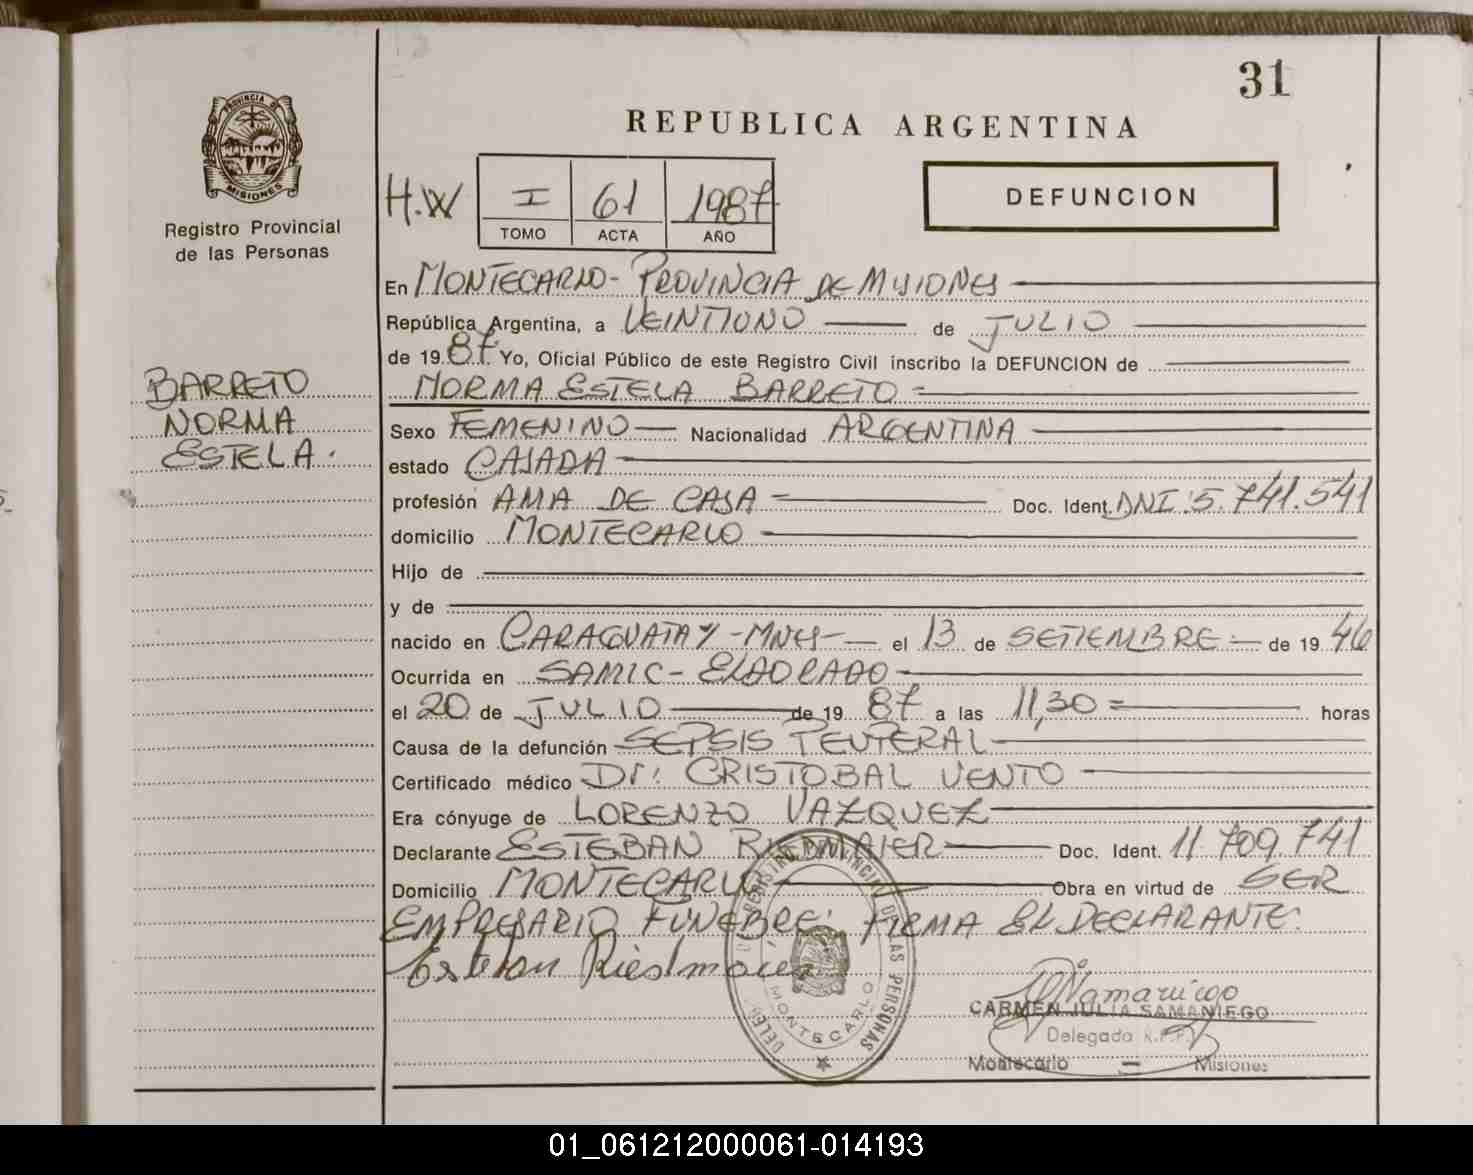 31
REPUBLICA ARGENTINA
PROVINCIA DE
MISIONES
Registro Provincial
de las Personas
H.W
I 61 1987
TOMO ACTA AÑO
DEFUNCION
En MONTECARLO - PROVINCIA DE MISIONES
República Argentina, a VEINTIUNO de JULIO
de 19 87. Yo, Oficial Público de este Registro Civil inscribo la DEFUNCION de
NORMA ESTELA BARRETO =
BARRETO
NORMA
ESTELA.
Sexo FEMENINO Nacionalidad ARGENTINA
estado CASADA
profesión AMA DE CASA = Doc. Ident. DNI 5.741.541
domicilio MONTECARLO
Hijo de
y de
nacido en CARAGUATAY - MNES - el 13 de SETIEMBRE de 19 46
Ocurrida en SAMIC - ELDORADO
el 20 de JULIO de 19 87 a las 11,30 = horas
Causa de la defunción SEPSIS
Certificado médico Dr. CRISTOBAL VENTO
Era cónyuge de LORENZO VAZQUEZ
Declarante ESTEBAN RIEDMAIER Doc. Ident. 11 709 741
Domicilio MONTECARLO Obra en virtud de SER
EMPRESARIO FUNEBRE. FIRMA EL DECLARANTE.
Esteban Riedmaier
REGISTRO PROVINCIAL DE LAS PERSONAS
MONTECARLO
Samaniego
CARMEN JULIA SAMANIEGO
Delegada R.P.P.
Montecarlo - Misiones
01_061212000061-014193